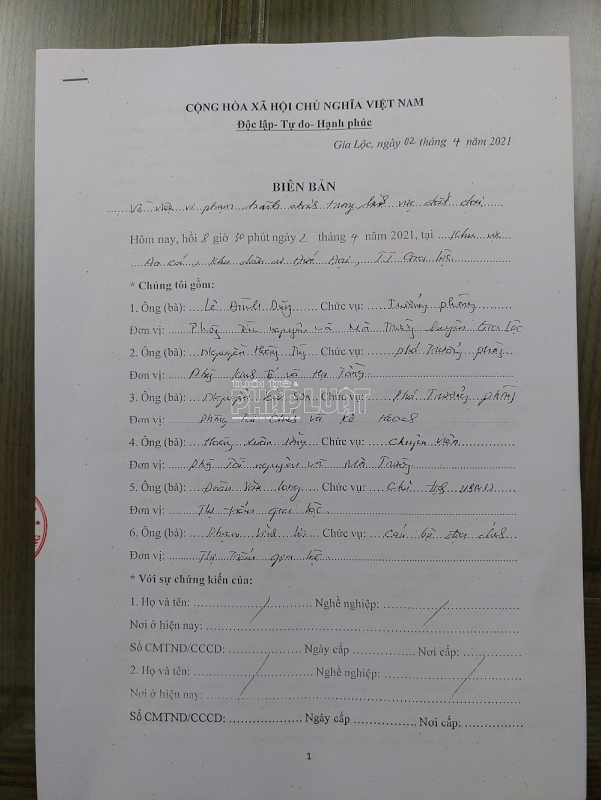 CỘNG HÒA XÃ HỘI CHỦ NGHĨA VIỆT NAM
Độc lập- Tự do- Hạnh phúc
Gia Lộc, ngày 02 tháng 4 năm 2021
BIÊN BẢN
Về việc vi phạm hành chính trong lĩnh vực đất đai
Hôm nay, hồi 8 giờ 30 phút ngày 2 tháng 4 năm 2021, tại Khu vực
Ao cá, Khu dân cư Đại, TT Gia Lộc
* Chúng tôi gồm:
1. Ông (bà): Lê Đình Dũng Chức vụ: Trưởng phòng
Đơn vị: Phòng Tài nguyên và Môi Trường huyện Gia Lộc
2. Ông (bà): Nguyễn Chức vụ: phó Trưởng phòng
Đơn vị: Phòng Kinh Tế và Hạ Tầng
TUỔI TRẺ
PHÁP LUẬT
3. Ông (bà): Nguyễn Sơn Chức vụ: Phó Trưởng phòng
Đơn vị: Phòng Tài chính và Kế Hoạch
4. Ông (bà): Hoàng Xuân Chức vụ: Chuyên viên
Đơn vị: Phòng Tài nguyên và Môi Trường
5. Ông (bà): Đoàn Văn Long Chức vụ: Chủ tịch UBND
Đơn vị: Thị trấn Gia Lộc
6. Ông (bà): Phạm Chức vụ: Cán bộ địa chính
Đơn vị: Thị Trấn Gia Lộc
* Với sự chứng kiến của:
1. Họ và tên: Nghề nghiệp:
Nơi ở hiện nay:
Số CMTND/CCCD: Ngày cấp Nơi cấp:
2. Họ và tên: Nghề nghiệp:
Nơi ở hiện nay:
Số CMTND/CCCD: Ngày cấp Nơi cấp:
1